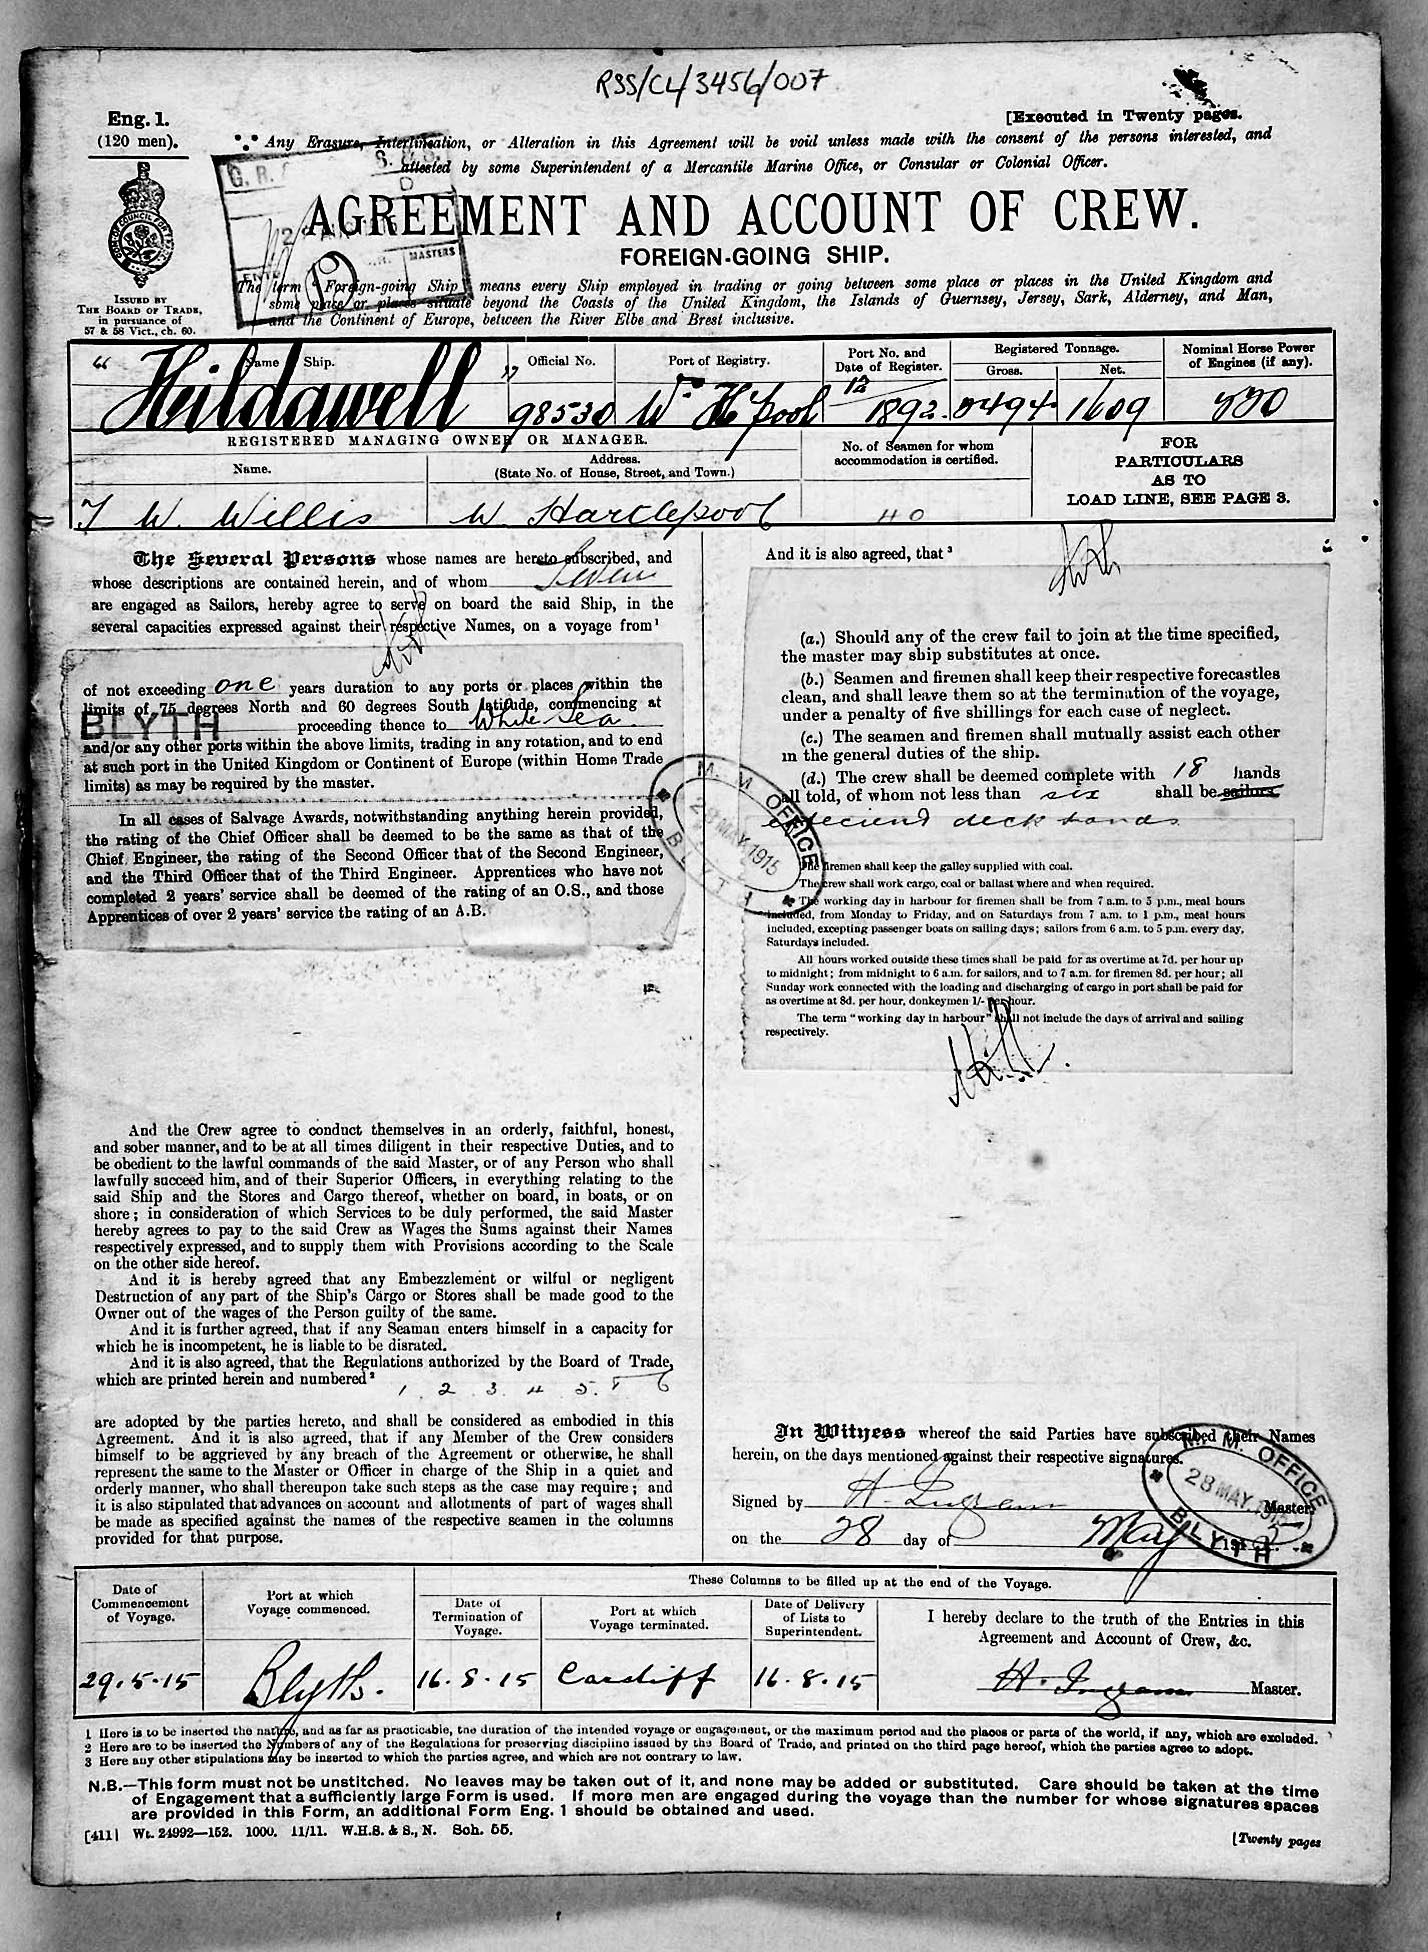 RSS/CL/3456/007
Eng. 1.
(120 men).
[Executed in Twenty pages.
Any Erasure, Interlineation, or Alteration in this Agreement will be void unless made with the consent of the persons interested, and
attested by some Superintendent of a Mercantile Marine Office, or Consular or Colonial Officer.
AGREEMENT AND ACCOUNT OF CREW.
FOREIGN-GOING SHIP.
MASTERS
The term "Foreign-going Ship" means every Ship employed in trading or going between some place or places in the United Kingdom and
some place or places situate beyond the Coasts of the United Kingdom, the Islands of Guernsey, Jersey, Sark, Alderney, and Man,
and the Continent of Europe, between the River Elbe and Brest inclusive.
ISSUED BY
THE BOARD OF TRADE,
in pursuance of
57 & 58 Vict., ch. 60.
Name Ship. Official No. Port of Registry. Port No. and Date of Register. Registered Tonnage. Gross. Net. Nominal Horse Power of Engines (if any).
"Hildawell" 98530 W. H'pool 12 1892 1609
REGISTERED MANAGING OWNER OR MANAGER.
Name. Address.
(State No. of House, Street, and Town.)
No. of Seamen for whom
accommodation is certified.
FOR
PARTICULARS
AS TO
LOAD LINE, SEE PAGE 3.
W. Willis W. Hartlepool 40
The Several Persons whose names are hereto subscribed, and
whose descriptions are contained herein, and of whom Seven
are engaged as Sailors, hereby agree to serve on board the said Ship, in the
several capacities expressed against their respective Names, on a voyage from¹
of not exceeding one years duration to any ports or places within the
limits of 75 degrees North and 60 degrees South latitude, commencing at
BLYTH proceeding thence to White Sea
and/or any other ports within the above limits, trading in any rotation, and to end
at such port in the United Kingdom or Continent of Europe (within Home Trade
limits) as may be required by the master.
In all cases of Salvage Awards, notwithstanding anything herein provided,
the rating of the Chief Officer shall be deemed to be the same as that of the
Chief Engineer, the rating of the Second Officer that of the Second Engineer,
and the Third Officer that of the Third Engineer. Apprentices who have not
completed 2 years' service shall be deemed of the rating of an O.S., and those
Apprentices of over 2 years' service the rating of an A.B.
And the Crew agree to conduct themselves in an orderly, faithful, honest,
and sober manner, and to be at all times diligent in their respective Duties, and to
be obedient to the lawful commands of the said Master, or of any Person who shall
lawfully succeed him, and of their Superior Officers, in everything relating to the
said Ship and the Stores and Cargo thereof, whether on board, in boats, or on
shore; in consideration of which Services to be duly performed, the said Master
hereby agrees to pay to the said Crew as Wages the Sums against their Names
respectively expressed, and to supply them with Provisions according to the Scale
on the other side hereof.
And it is hereby agreed that any Embezzlement or wilful or negligent
Destruction of any part of the Ship's Cargo or Stores shall be made good to the
Owner out of the wages of the Person guilty of the same.
And it is further agreed, that if any Seaman enters himself in a capacity for
which he is incompetent, he is liable to be disrated.
And it is also agreed, that the Regulations authorized by the Board of Trade,
which are printed herein and numbered²
1. 2. 3. 4. 5. & 6
are adopted by the parties hereto, and shall be considered as embodied in this
Agreement. And it is also agreed, that if any Member of the Crew considers
himself to be aggrieved by any breach of the Agreement or otherwise, he shall
represent the same to the Master or Officer in charge of the Ship in a quiet and
orderly manner, who shall thereupon take such steps as the case may require; and
it is also stipulated that advances on account and allotments of part of wages shall
be made as specified against the names of the respective seamen in the columns
provided for that purpose.
And it is also agreed, that³
(a.) Should any of the crew fail to join at the time specified,
the master may ship substitutes at once.
(b.) Seamen and firemen shall keep their respective forecastles
clean, and shall leave them so at the termination of the voyage,
under a penalty of five shillings for each case of neglect.
(c.) The seamen and firemen shall mutually assist each other
in the general duties of the ship.
(d.) The crew shall be deemed complete with 18 hands
all told, of whom not less than six shall be sailors
efficient deck hands
M. M. OFFICE
28 MAY 1915
BLYTH
The firemen shall keep the galley supplied with coal.
The crew shall work cargo, coal or ballast where and when required.
The working day in harbour for firemen shall be from 7 a.m. to 5 p.m., meal hours
included, from Monday to Friday, and on Saturdays from 7 a.m. to 1 p.m., meal hours
included, excepting passenger boats on sailing days; sailors from 6 a.m. to 5 p.m. every day,
Saturdays included.
All hours worked outside these times shall be paid for as overtime at 7d. per hour up
to midnight; from midnight to 6 a.m. for sailors, and to 7 a.m. for firemen 8d. per hour; all
Sunday work connected with the loading and discharging of cargo in port shall be paid for
as overtime at 8d. per hour, donkeymen 1/- per hour.
The term "working day in harbour" shall not include the days of arrival and sailing
respectively.
In Witness whereof the said Parties have subscribed their Names
herein, on the days mentioned against their respective signatures.
Signed by H. Ingram Master,
on the 28 day of May 1915.
M. M. OFFICE
28 MAY 1915
BLYTH
These Columns to be filled up at the end of the Voyage.
Date of Commencement of Voyage. Port at which Voyage commenced. Date of Termination of Voyage. Port at which Voyage terminated. Date of Delivery of Lists to Superintendent.
I hereby declare to the truth of the Entries in this
Agreement and Account of Crew, &c.
29.5.15 Blyth. 16.8.15 Cardiff 16.8.15 H. Ingram Master.
1 Here is to be inserted the nature, and as far as practicable, the duration of the intended voyage or engagement, or the maximum period and the places or parts of the world, if any, which are excluded.
2 Here are to be inserted the Numbers of any of the Regulations for preserving discipline issued by the Board of Trade, and printed on the third page hereof, which the parties agree to adopt.
3 Here any other stipulations may be inserted to which the parties agree, and which are not contrary to law.
N.B.—This form must not be unstitched. No leaves may be taken out of it, and none may be added or substituted. Care should be taken at the time
of Engagement that a sufficiently large Form is used. If more men are engaged during the voyage than the number for whose signatures spaces
are provided in this Form, an additional Form Eng. 1 should be obtained and used.
[411] Wt. 24992—152. 1000. 11/11. W.H.S. & S., N. Sch. 55.
[Twenty pages